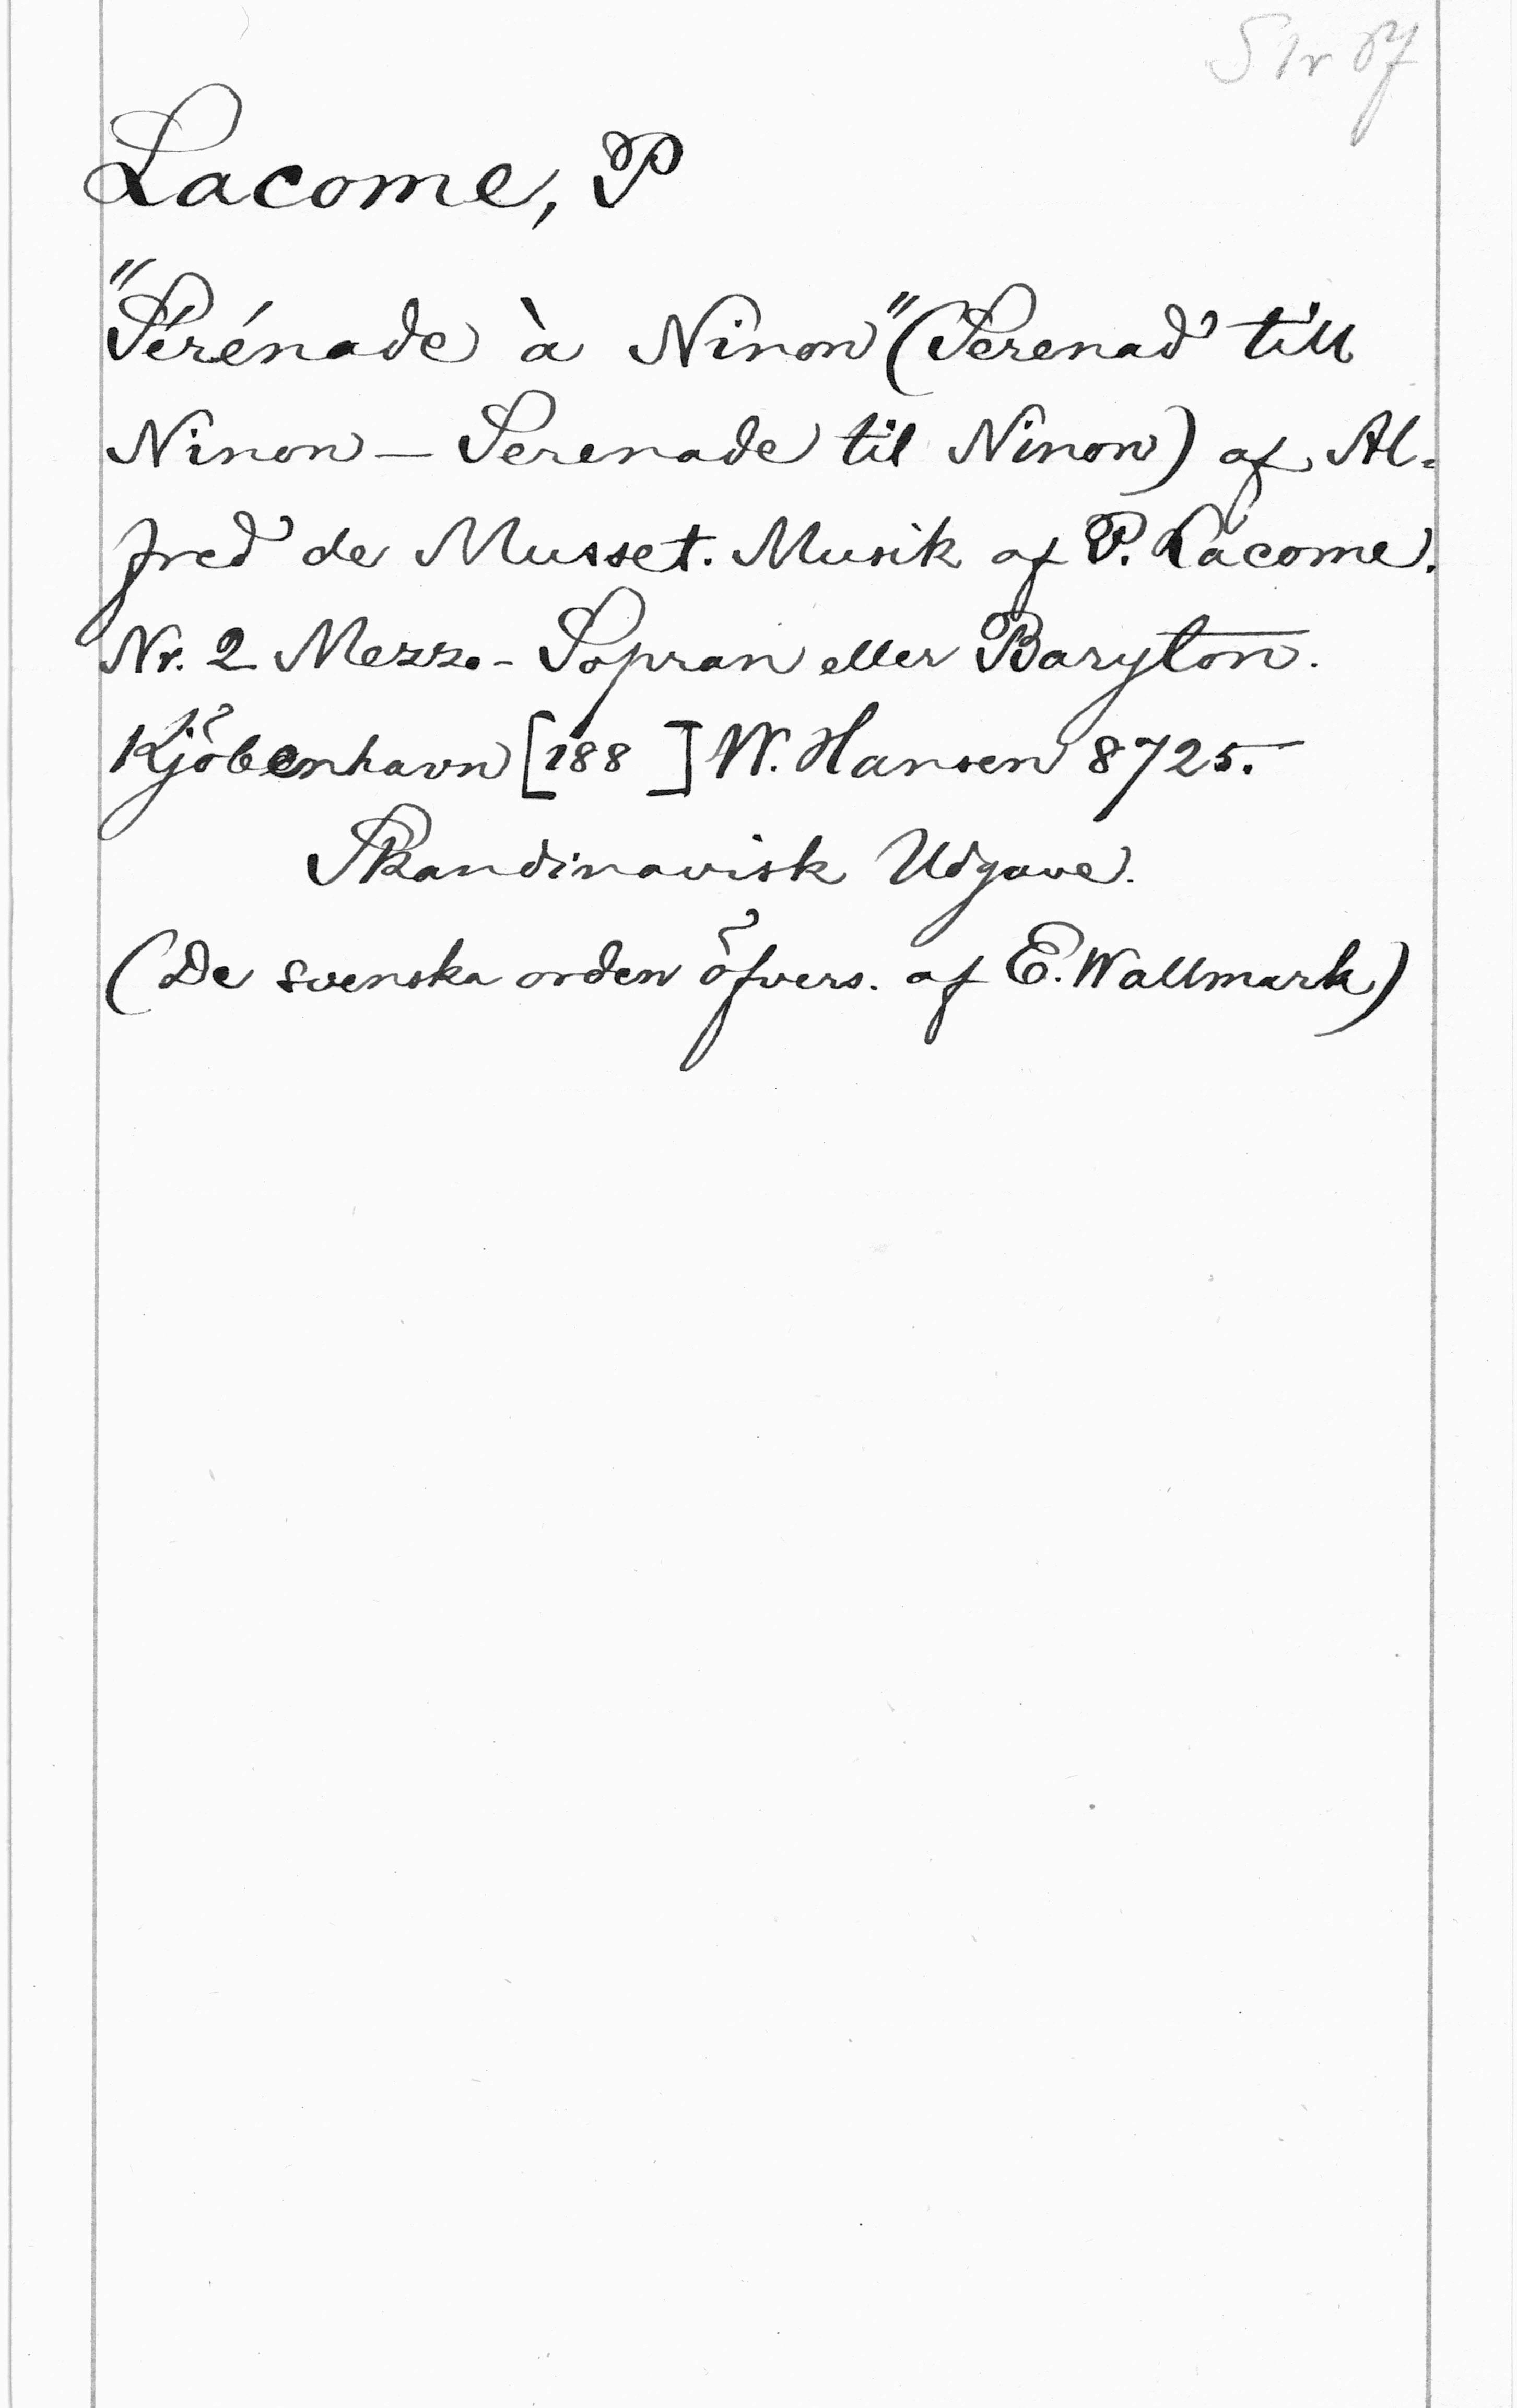 Lacome, P
"Sérénade à Ninon" (Serenad till
Ninon — Serenade til Ninon) af Al-
fred de Musset. Musik af P. Lacome.
Nr. 2 Mezzo-Sopran eller Baryton.
Kjöbenhavn [188 ] W. Hansen 8725.
Skandinavisk Udgave.
(De svenska orden öfvers. af E. Wallmark)